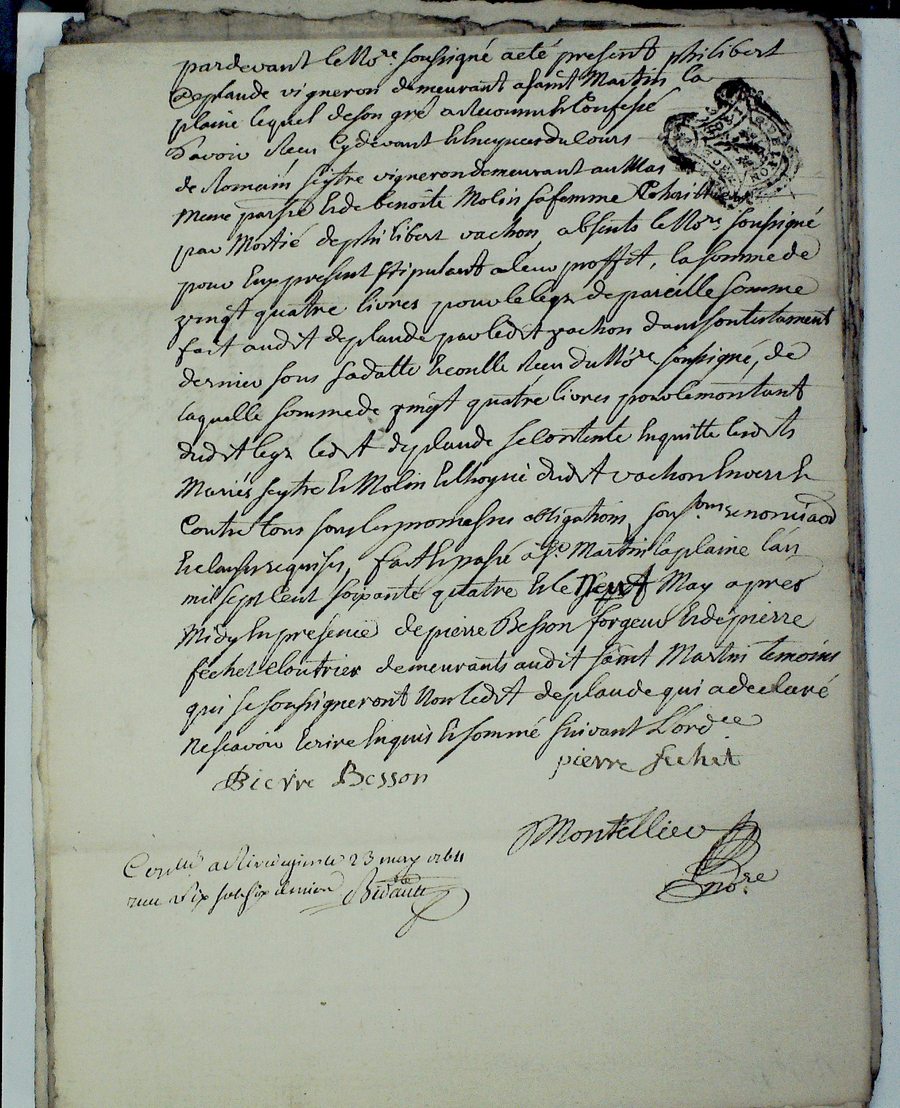 pardevant le No.re soussigné a eté present philibert
Deplaude vigneron demeurant a saint Martin la
plaine lequel de son gré a reconnu et confessé
d'avoir receu cy devant et en especes du cours
de Romain seytre vigneron demeurant au Mas
par et de benoite Molin sa femme
par Moitié de philibert vachon, absents le No.re soussigné
pour eux present stipulant a leur proffit, la somme de
vingt quatre livres pour le legs de pareille somme
fait audit deplaude par ledit vachon dans son testament
dernier sous sa datte receu du No.re soussigné, de
laquelle somme de vingt quatre livres pour le montant
dudit legs ledit deplaude se contente en quitte lesdits
Mariés seytre et Molin et l'hoyrie dudit vachon envers et
contre tous sous les promesses obligations, soums.ons renonciaõn
et clauses requises, fait et passé a s.t Martin la plaine l'an
mil sept cent soixante quatre et le neuf May apres
Midy en presence de pierre Besson forgeur et de pierre
fechet cloutrier demeurants audit saint Martin temoins
qui se soussigneront Non ledit deplaude qui a declaré
ne scavoir ecrire enquis et sommé suivant l'ord.ce
Pierre Besson
pierre fechet
Montellier
No.re
Con.llé a Rivedegier le 23 may 1764
receu six sols six deniers